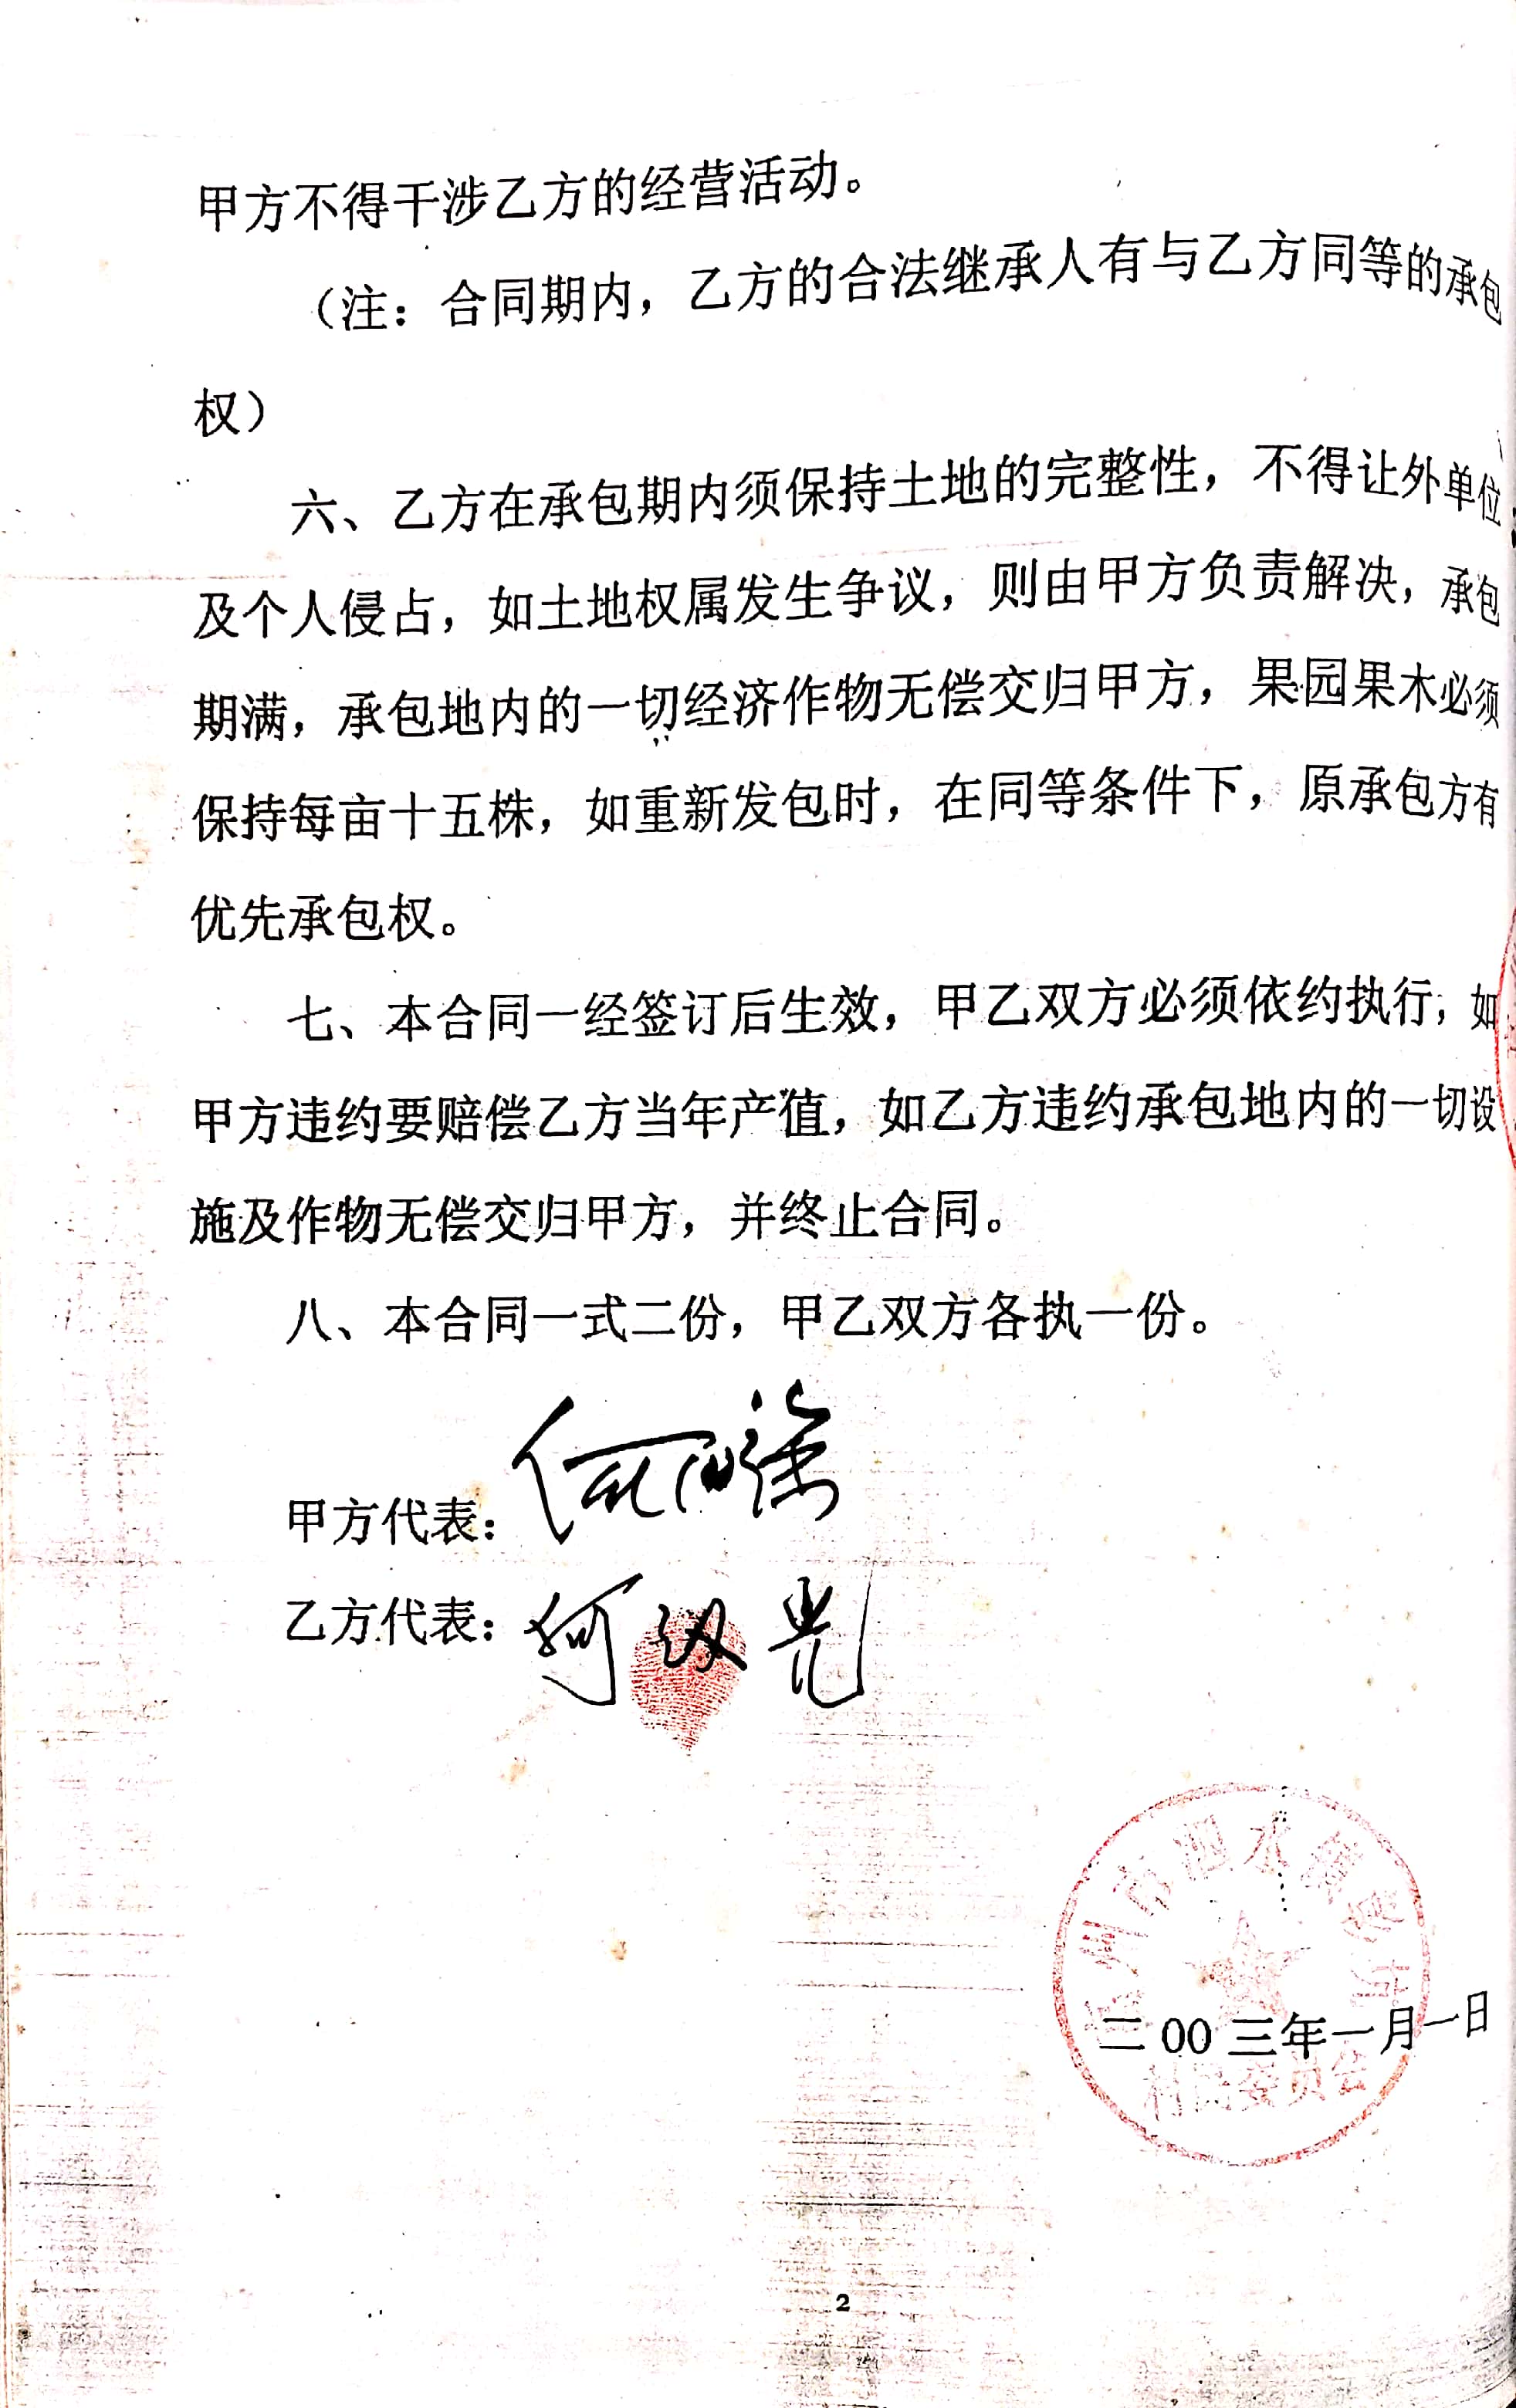 甲方不得干涉乙方的经营活动。
（注：合同期内，乙方的合法继承人有与乙方同等的承包
权）
六、乙方在承包期内须保持土地的完整性，不得让外单位
及个人侵占，如土地权属发生争议，则由甲方负责解决，承包
期满，承包地内的一切经济作物无偿交归甲方，果园果木必须
保持每亩十五株，如重新发包时，在同等条件下，原承包方有
优先承包权。
七、本合同一经签订后生效，甲乙双方必须依约执行；如
甲方违约要赔偿乙方当年产值，如乙方违约承包地内的一切设
施及作物无偿交归甲方，并终止合同。
八、本合同一式二份，甲乙双方各执一份。
甲方代表：何
乙方代表：何 光
州市泗水镇
二00三年一月一日
村民委员会
2